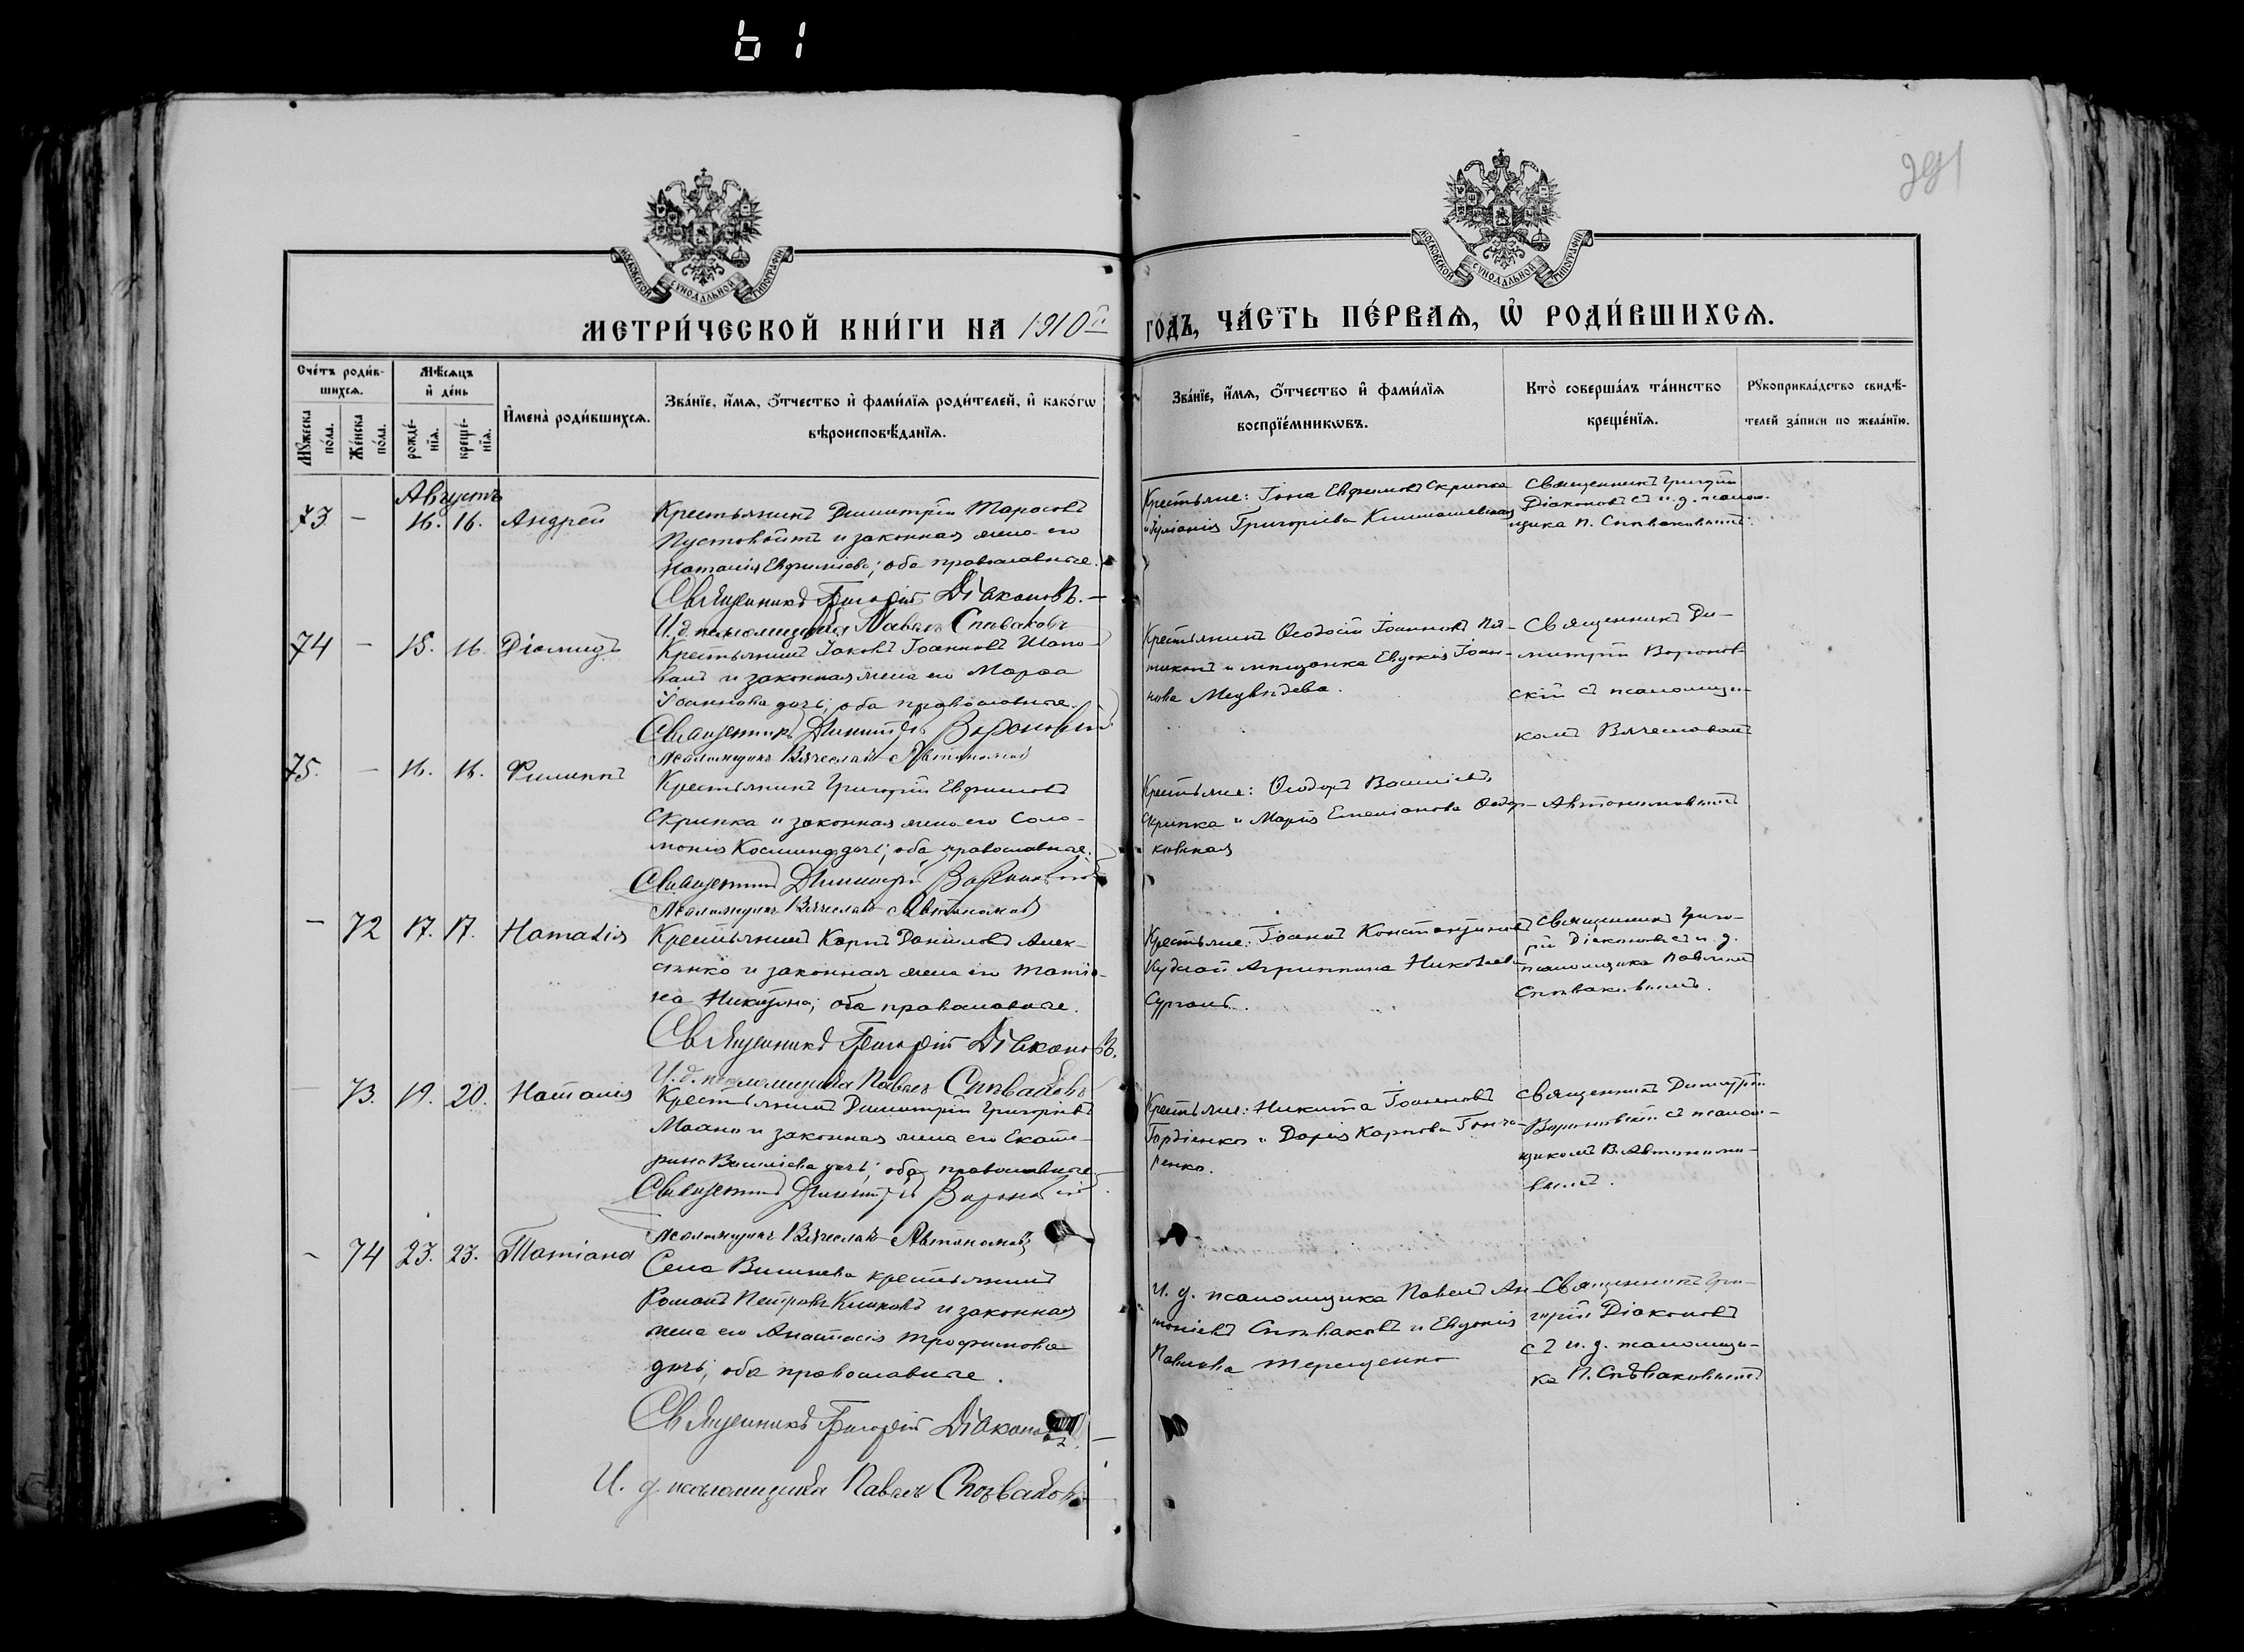 61
291
МОСКОВСКОЙ СѴНОДАЛЬНОЙ ТИПОГРАФІИ
МОСКОВСКОЙ СѴНОДАЛЬНОЙ ТИПОГРАФІИ
МЕТРИ́ЧЕСКОЙ КНИ́ГИ НА 1910 й
ГОДЪ, ЧА́СТЬ ПЕ́РВАѦ, Ѿ РОДИ́ВШИХСѦ.
Сче́тъ роди́в-
шихсѧ.
Мѣ́сѧцъ
и҆ де́нь
Мꙋ́жеска
по́ла.
Же́нска
по́ла.
рожде́-
нїѧ.
креще́-
нїѧ.
И҆мена̀ роди́вшихсѧ.
Зва́нїе, и҆́мѧ, ѻ҆́тчество и҆ фами́лїѧ роди́телей, и҆ како́гѡ
вѣроисповѣ́данїѧ.
Зва́нїе, и҆́мѧ, ѻ҆́тчество и҆ фами́лїѧ
воспрїе́мникѡвъ.
Кто̀ соверша́лъ та́инство
креще́нїѧ.
Рꙋкоприкла́дство свидѣ́-
телей за́писи по жела́нїю.
Августъ
73 – 16. 16. Андрей
Крестьянинъ Димитрій Тарасовъ
Пустовойтъ и законная жена его
Наталія Евфиміева; оба православные.
Священникъ Григорій Діаконовъ. –
И. д. псаломщика Павелъ Спѣваковъ
Крестьяне: Іона Евфимовъ Скрипка
Григоріева
Священникъ Григорій
Діаконовъ съ и. д. псалом-
щика П. Спѣваковымъ.
74 – 15. 16. Діомидъ
Крестьянинъ Іаковъ Іоанновъ Шапо-
валъ и законная жена его Марѳа
Іоаннова дочь; оба православные.
Священникъ Димитрій Вороновскій
Псаломщикъ Вячеславъ Автономовъ
Крестьянинъ Ѳеодосій Іоанновъ Пя-
тикопъ и мѣщанка Евдокія Іоан-
нова Медвѣдева.
Священникъ Ди-
митрій Воронов-
скій съ псаломщи-
комъ Вячеславомъ
75. – 16. 16. Филиппъ
Крестьянинъ Григорій Евфимовъ
Скрипка и законная жена его Соло-
монія Косьмина дочь; оба православные.
Священникъ Димитрій Вороновскій
Псаломщикъ Вячеславъ Автономовъ
Крестьяне: Ѳеодоръ Васильевъ
Скрипка и Марія Емеліанова
Автономовымъ
– 72 17. 17. Наталія
Крестьянинъ Карпъ Даніиловъ Алек-
сѣнко и законная жена его Татіа-
на Никитина; оба православные.
Священникъ Григорій Діаконовъ.
И. д. псаломщика Павелъ Спѣваковъ
Крестьяне: Іоаннъ Константиновъ
Агриппина Николаева
Священникъ Григо-
рій Діаконовъ съ и. д.
псаломщика Павломъ
Спѣваковымъ.
– 73. 19. 20. Наталія
Крестьянинъ Димитрій Григорьевъ
и законная жена его Екате-
рина Васильева дочь; оба православные.
Священникъ Димитрій Вороновскій
Псаломщикъ Вячеславъ Автономовъ
Крестьяне: Никита Іоанновъ
Гордіенко и Дарія Карпова Гонча-
ренко.
Священникъ Димитрій
Вороновскій съ псалом-
щикомъ В. Автономо-
вымъ.
– 74 23. 23. Татіана
Села Вишнева крестьянинъ
Романъ Петровъ Клиновъ и законная
жена его Анастасія Трофимова
дочь; оба православные.
Священникъ Григорій Діаконовъ –
И. д. псаломщика Павелъ Спѣваковъ
И. д. псаломщика Павелъ Ан-
тоніевъ Спѣваковъ и Евдокія
Павлова Терещенко
Священникъ Гри-
горій Діаконовъ
съ и. д. псаломщи-
ка П. Спѣваковымъ